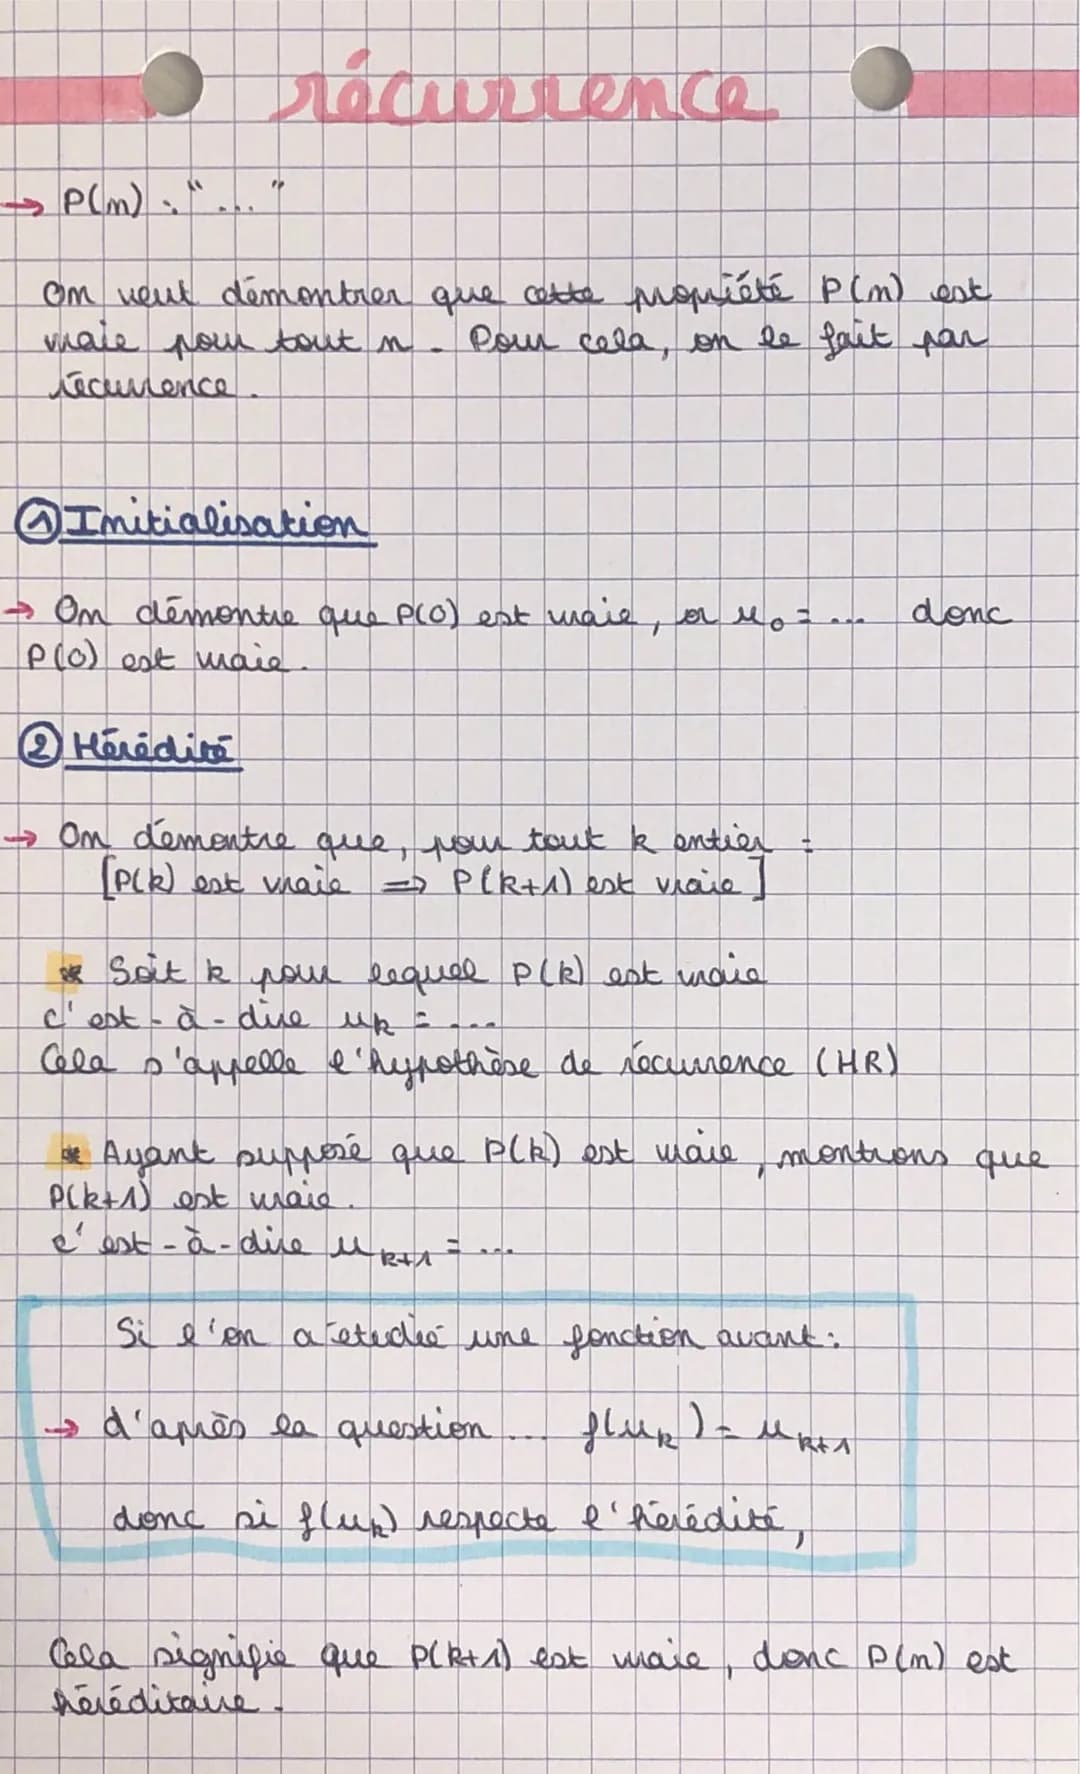 récurrence
→ P(n) : "..."
On veut démontrer que cette propriété P(n) est
vraie pour tout n. Pour cela, on le fait par
récurrence.
① Initialisation
→ On démontre que P(0) est vraie, or u₀ = ... donc
P(0) est vraie.
② Hérédité
→ On démontre que, pour tout k entier :
[P(k) est vraie => P(k+1) est vraie]
* Soit k pour lequel P(k) est vraie
c'est-à-dire uₖ = ...
Cela s'appelle l'hypothèse de récurrence (HR)
* Ayant supposé que P(k) est vraie, montrons que
P(k+1) est vraie.
c'est-à-dire uₖ₊₁ = ...
Si l'on a étudié une fonction avant :
→ d'après la question ... f(uₖ) = uₖ₊₁
donc si f(uₖ) respecte l'hérédité,
Cela signifie que P(k+1) est vraie, donc P(n) est
héréditaire.